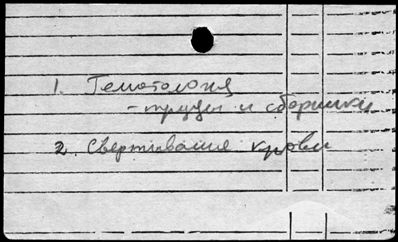 1. Гематология
- труды и сборники
2. Свертывание крови